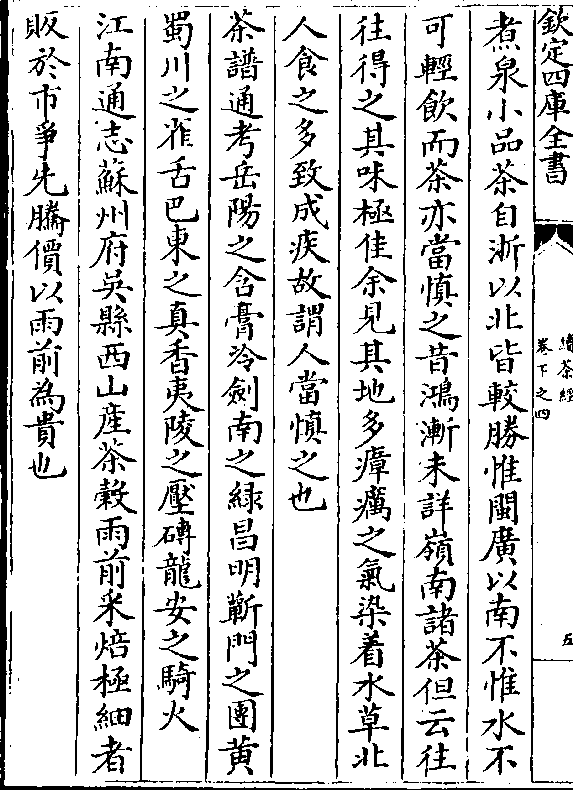 欽定四庫全書
續茶經
卷下之四
五
煮泉小品茶自浙以北皆較勝惟閩廣以南不惟水不
可輕飲而茶亦當慎之昔鴻漸未詳嶺南諸茶但云往
往得之其味極佳余見其地多瘴癘之氣染着水草北
人食之多致成疾故謂人當慎之也
茶譜通考岳陽之含膏冷劍南之緑昌明蘄門之團黄
蜀川之雀舌巴東之真香夷陵之壓磚龍安之騎火
江南通志蘇州府吳縣西山産茶穀雨前采焙極細者
販於市爭先騰價以雨前為貴也